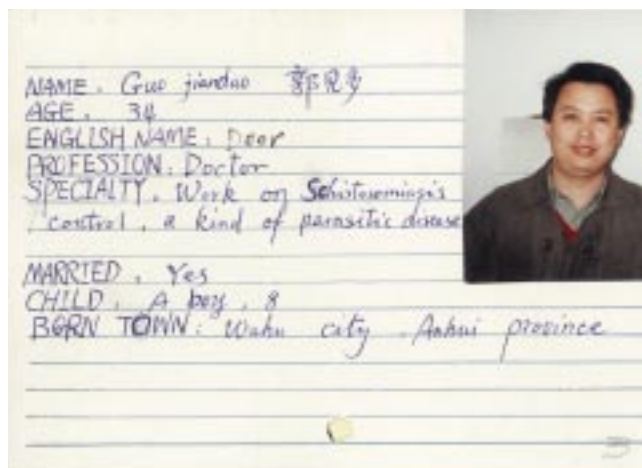 NAME. Guo jiandao 郭見步
AGE. 34
ENGLISH NAME: Door
PROFESSION: Doctor
SPECIALTY. Work on Schistosomiasis
control, a kind of parasitic disease
MARRIED. Yes
CHILD. A boy. 8
BORN TOWN: Wuhu city. Anhui province